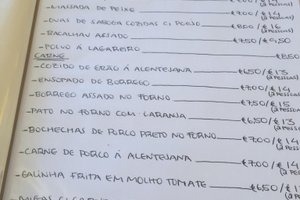 -MASSADA DE PEIXE €7.00/€14
(2 PESSOAS)
-OVAS DE SARDA COZIDAS C/ POLVO €8.00/€16
(2 PESSOAS)
-BACALHAU ASSADO €7.50/€9.50
-POLVO À LAGAREIRO €8.50
CARNE
-COZIDO DE GRÃO À ALENTEJANA €6.50/€13
(2 PESSOAS)
-ENSOPADO DE BORREGO €7.00/€14
(2 PESSOAS)
-BORREGO ASSADO NO FORNO €7.50/€15
(2 PESSOAS)
-PATO NO FORNO COM LARANJA €6.50/€13
(2 PESSOAS)
-BOCHECHAS DE PORCO PRETO NO FORNO €7.00/€14
(2 PESSOAS)
-CARNE DE PORCO À ALENTEJANA €7.00/€14
(2 PESSOAS)
-GALINHA FRITA EM MOLHO TOMATE €6.50/€13